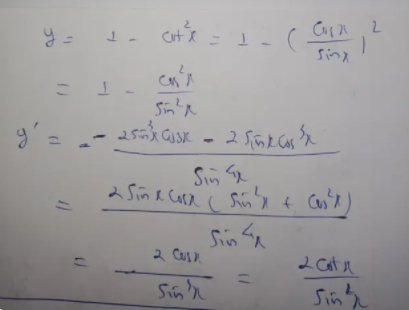 y = 1 - cot²x = 1 - (cosx/sinx)²
= 1 - cos²x/sin²x
y' = - -2sin³xcosx - 2sinxcos³x/sin⁴x
= 2sinxcosx(sin²x + cos²x)/sin⁴x
= 2cosx/sin³x = 2cotx/sin²x